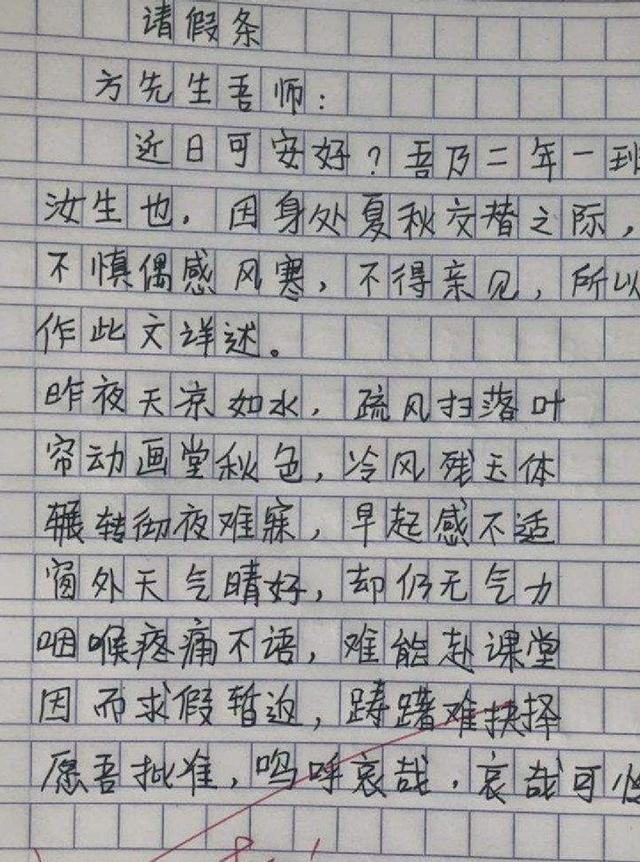 请假条
方先生吾师：
近日可安好？吾乃二年一班
汝生也，因身处夏秋交替之际，
不慎偶感风寒，不得亲见，所以
作此文详述。
昨夜天凉如水，疏风扫落叶
帘动画堂秋色，冷风残玉体
辗转彻夜难寐，早起感不适
窗外天气晴好，却仍无气力
咽喉疼痛不语，难能赴课堂
因而求假暂迫，踌躇难抉择
愿吾批准，呜呼哀哉，哀哉可